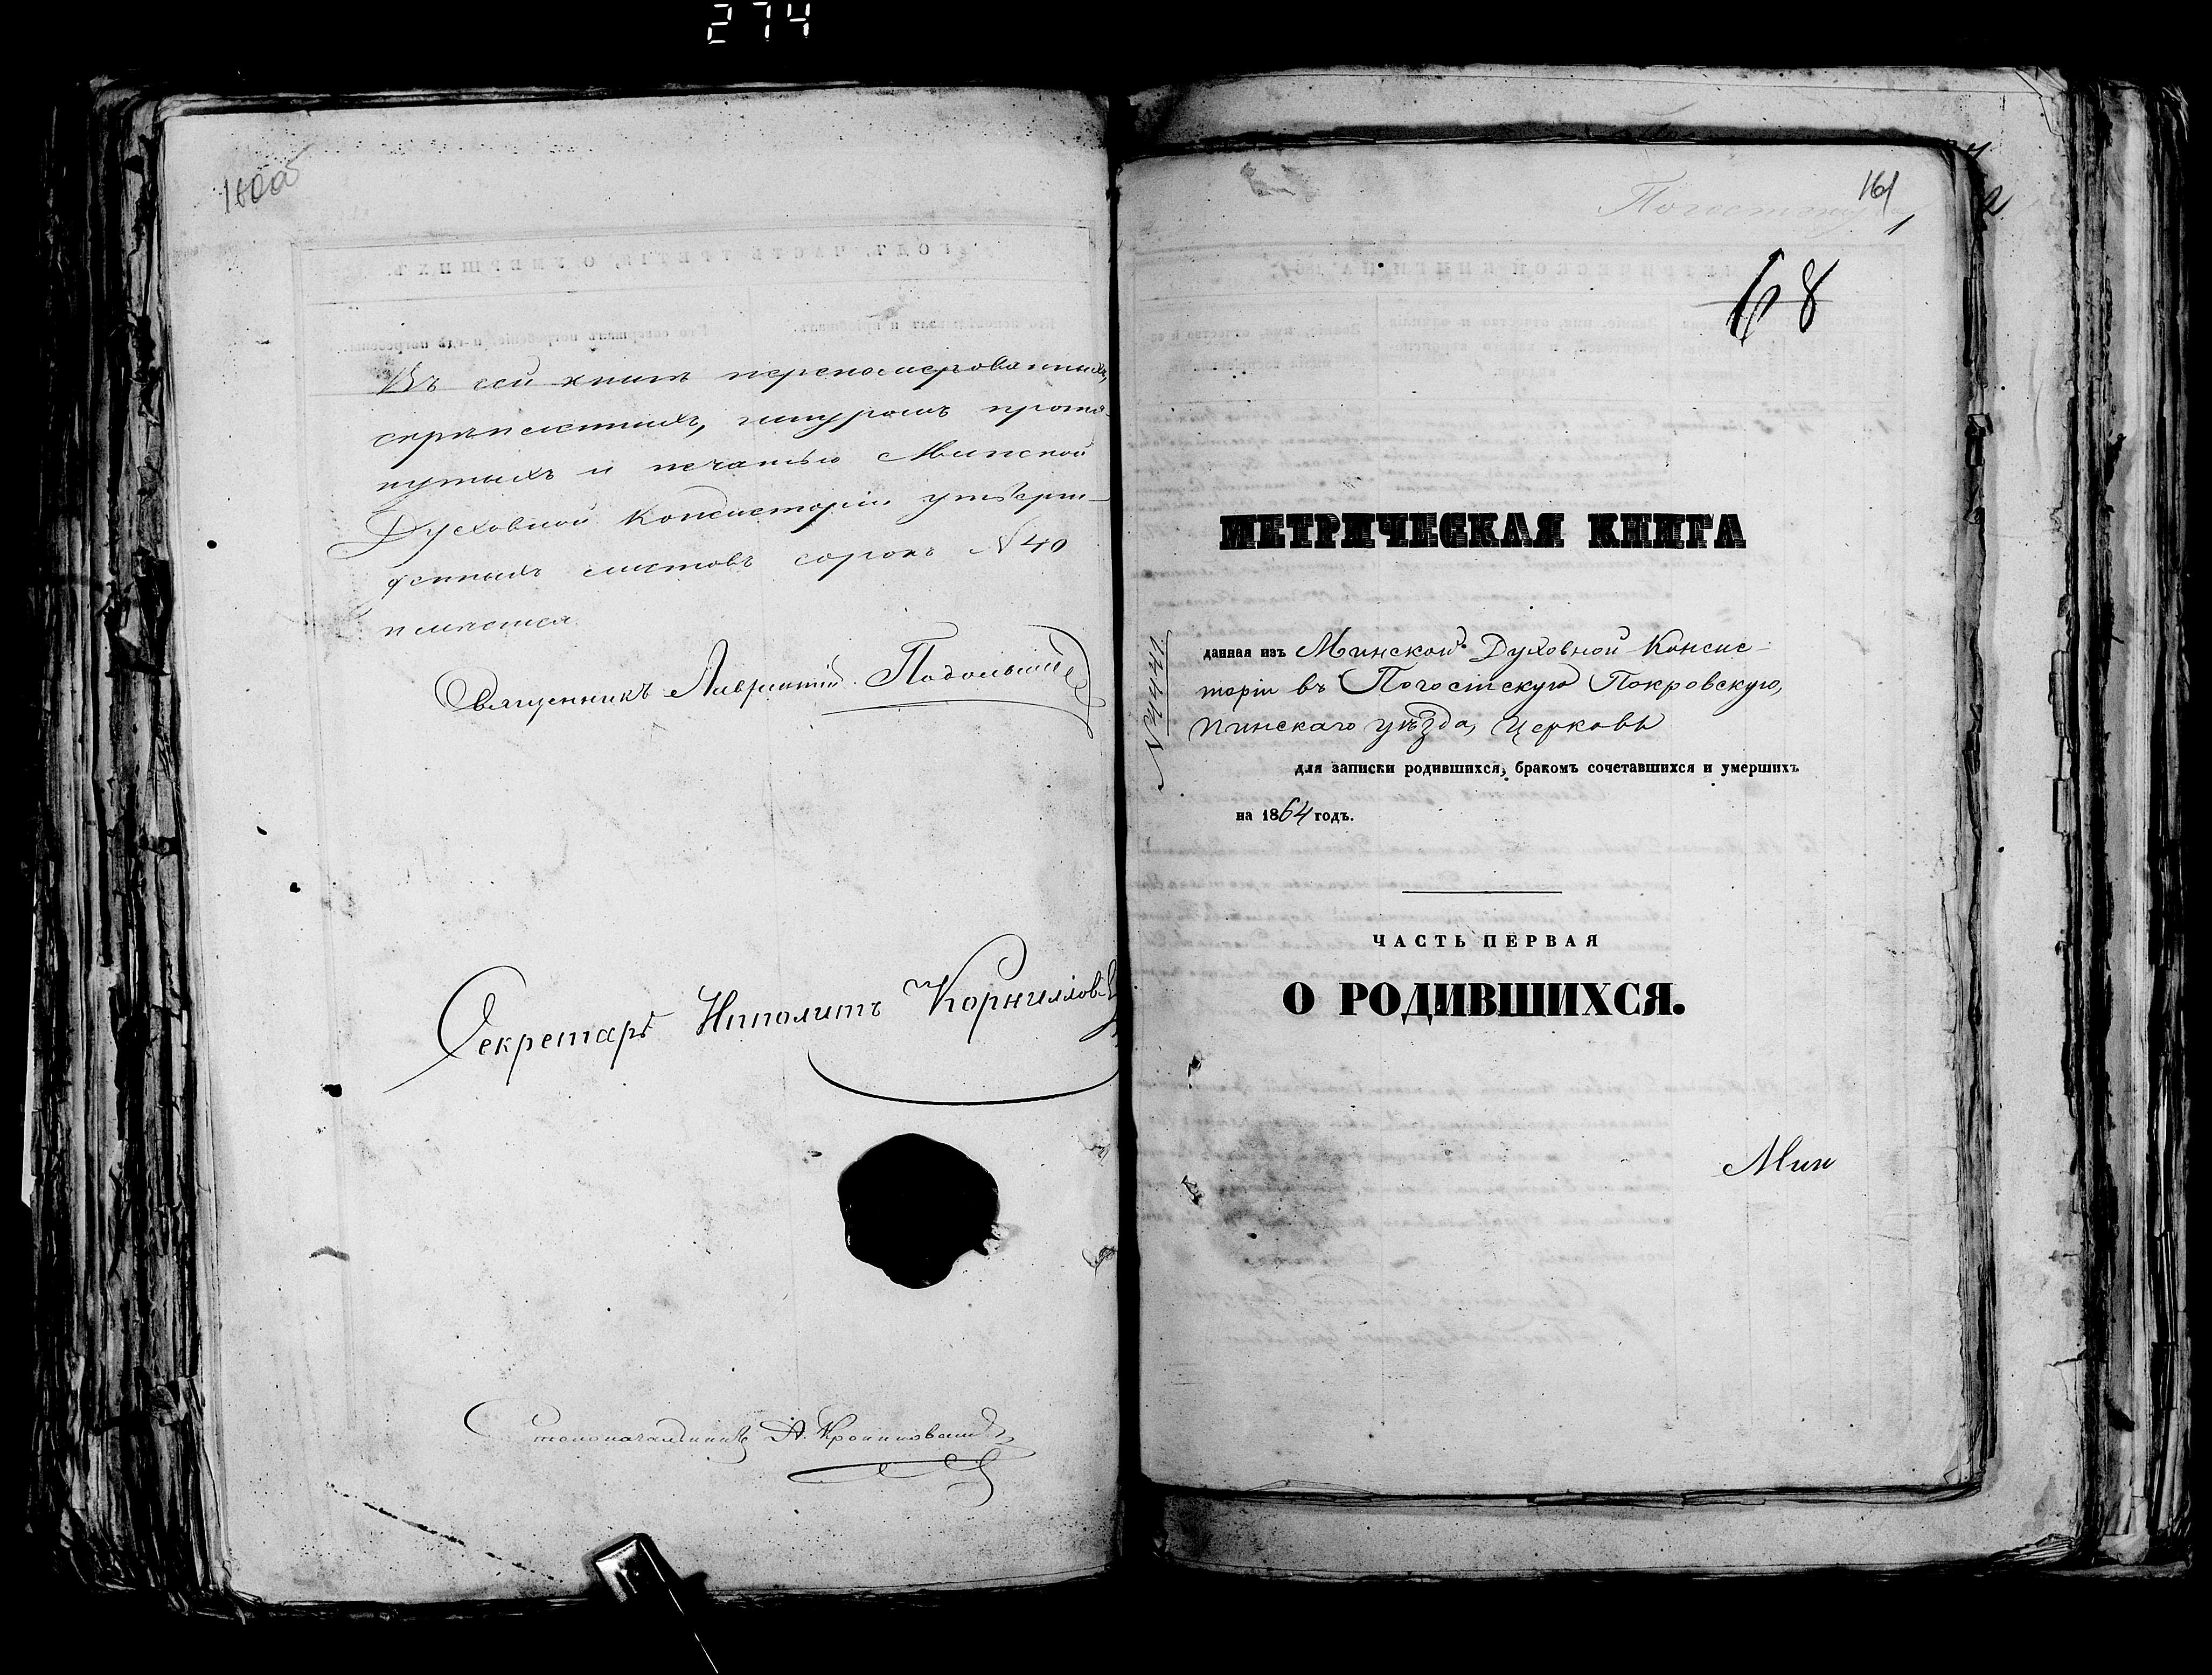 274
160об
Въ сей книгѣ перенумерованныхъ,
скрѣпленныхъ, шнуромъ прони-
нутыхъ и печатью Минской
Духовной Консисторіи утверж-
денныхъ листовъ сорокъ N 40
имѣется
Священникъ Лаврентій Подольскій
Секретарь Ипполитъ Корниллов
Столоначальникъ А.
161
Погостскую
68
МЕТРИЧЕСКАЯ КНИГА
N 4441
данная изъ Минской Духовной Консис-
торіи въ Погостскую Покровскую,
Пинскаго уѣзда, Церковь
для записки родившихся, бракомъ сочетавшихся и умершихъ
на 1864 годъ.
ЧАСТЬ ПЕРВАЯ
О РОДИВШИХСЯ.
Мин